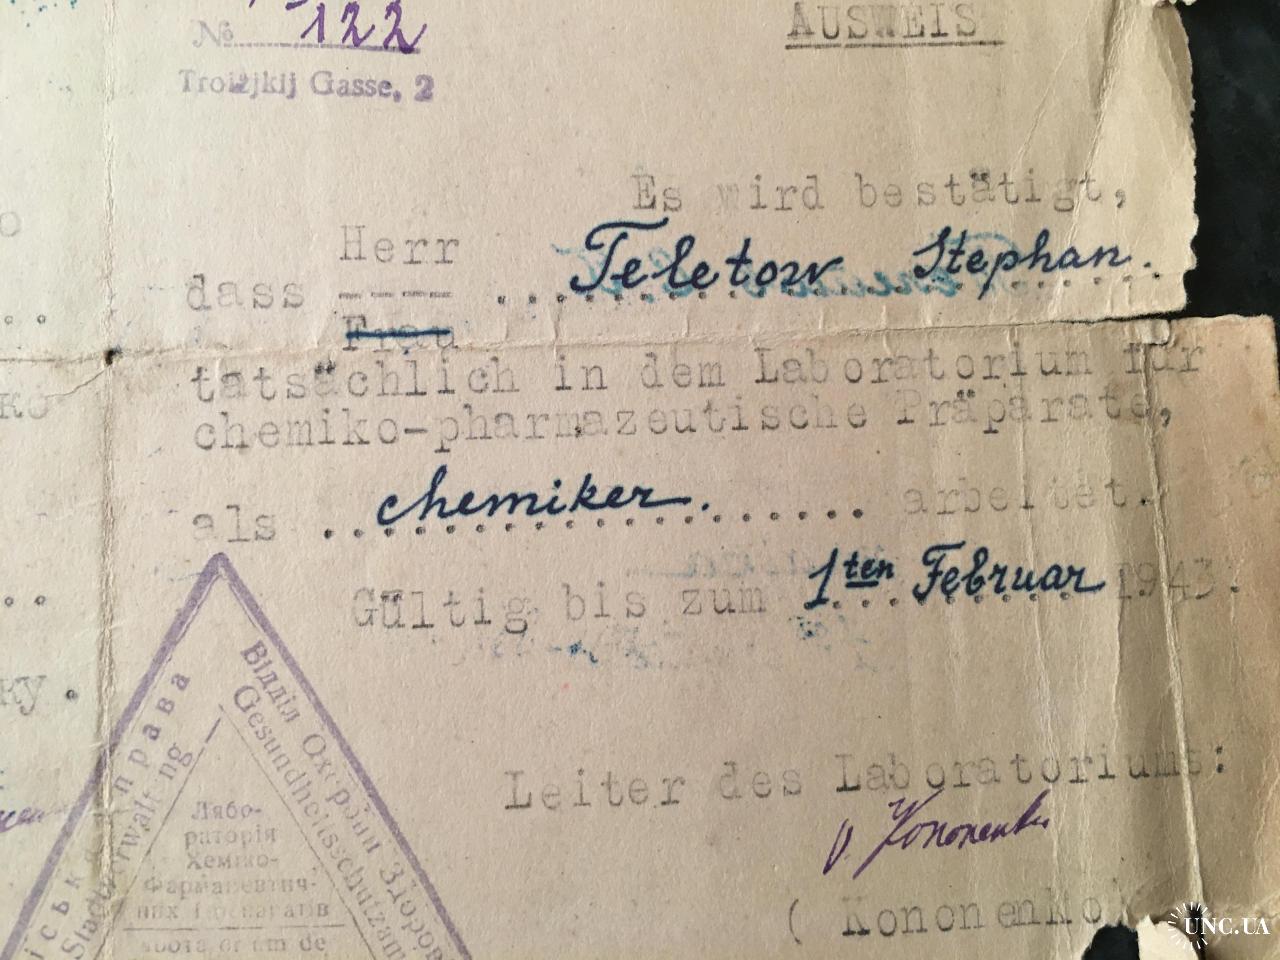 № 122
Troizjkij Gasse, 2
AUSWEIS
Es wird bestätigt,
Herr
dass ---- Teletow Stephan.
Frau
tatsächlich in dem Laboratorium für
chemiko-pharmazeutische Präparate,
als chemiker. arbeitet.
Gültig bis zum 1ten Februar 1943.
Leiter des Laboratoriums:
Kononenko
( Kononenko
ко
ку.
Відділ Охорони Здоров
Gesundheitsschutzam
ська Управа
Stadtverwaltung
Лябо-
раторія
Хеміко-
Фармацевтич-
них Препаратів
UNC.UA